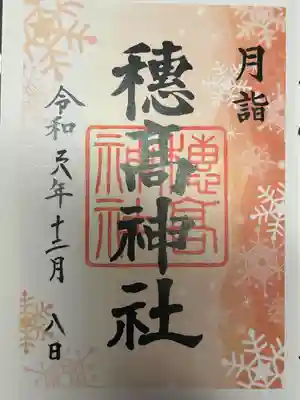 月詣
穂髙神社
穂高神社
令和六年十二月八日